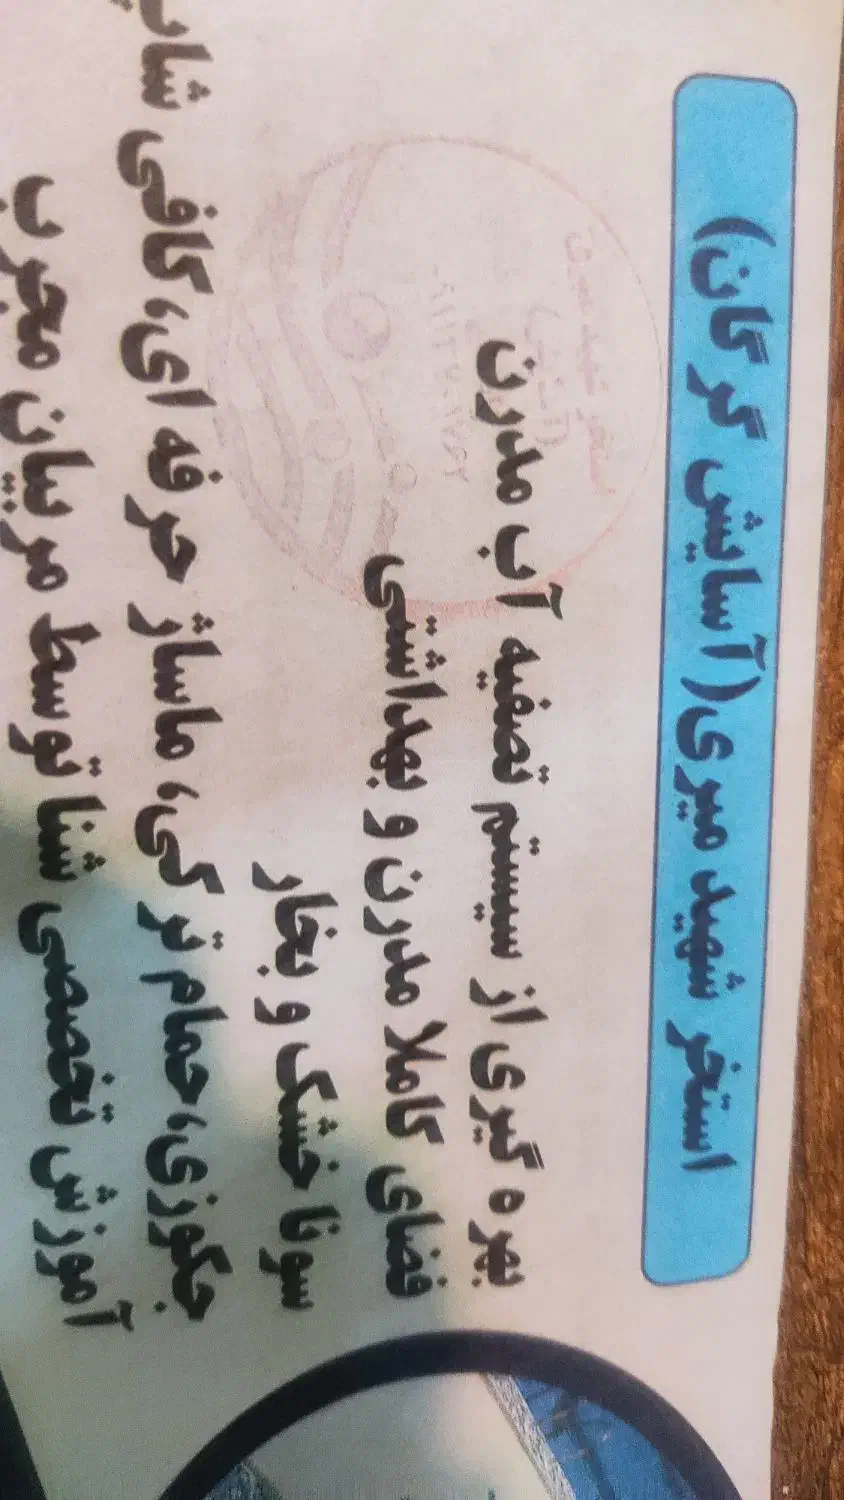 استخر شهید میری(آسایش گرگان)
بهره گیری از سیستم تصفیه آب مدرن
فضای کاملا مدرن و بهداشتی
سونا خشک و بخار
جکوزی، حمام ترکی، ماساژ حرفه ای، کافی شاپ
آموزش تخصصی شنا توسط مربیان مجرب